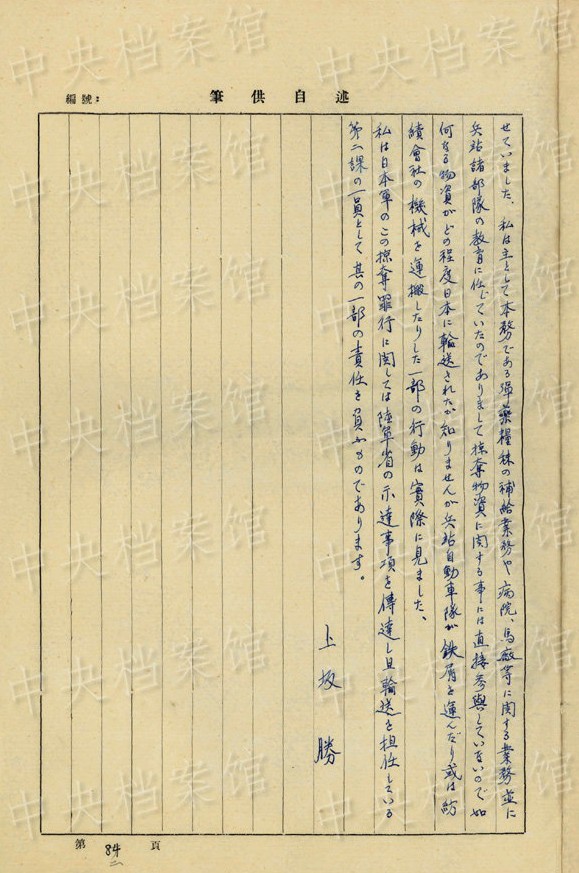 編號:
述自供筆
せていました、私は主として本務である弾薬糧秣の補給業務や病院、馬廠等に関する業務並に
兵站諸部隊の教育に任じていたのでありまして掠奪物資に関する事には直接参與していないので如
何なる物資がどの程度日本に輸送されたか知りませんが兵站自動車隊が鉄屑を運んだり或は紡
績會社の機械を運搬したりした一部の行動は實際に見ました、
私は日本軍のこの掠奪罪行に関しては陸軍省の示達事項を傳達し且輸送を担任している
第二課の一員として其の一部の責任を負ふものであります。
上坂 勝
第 84 頁
二
中央档案馆